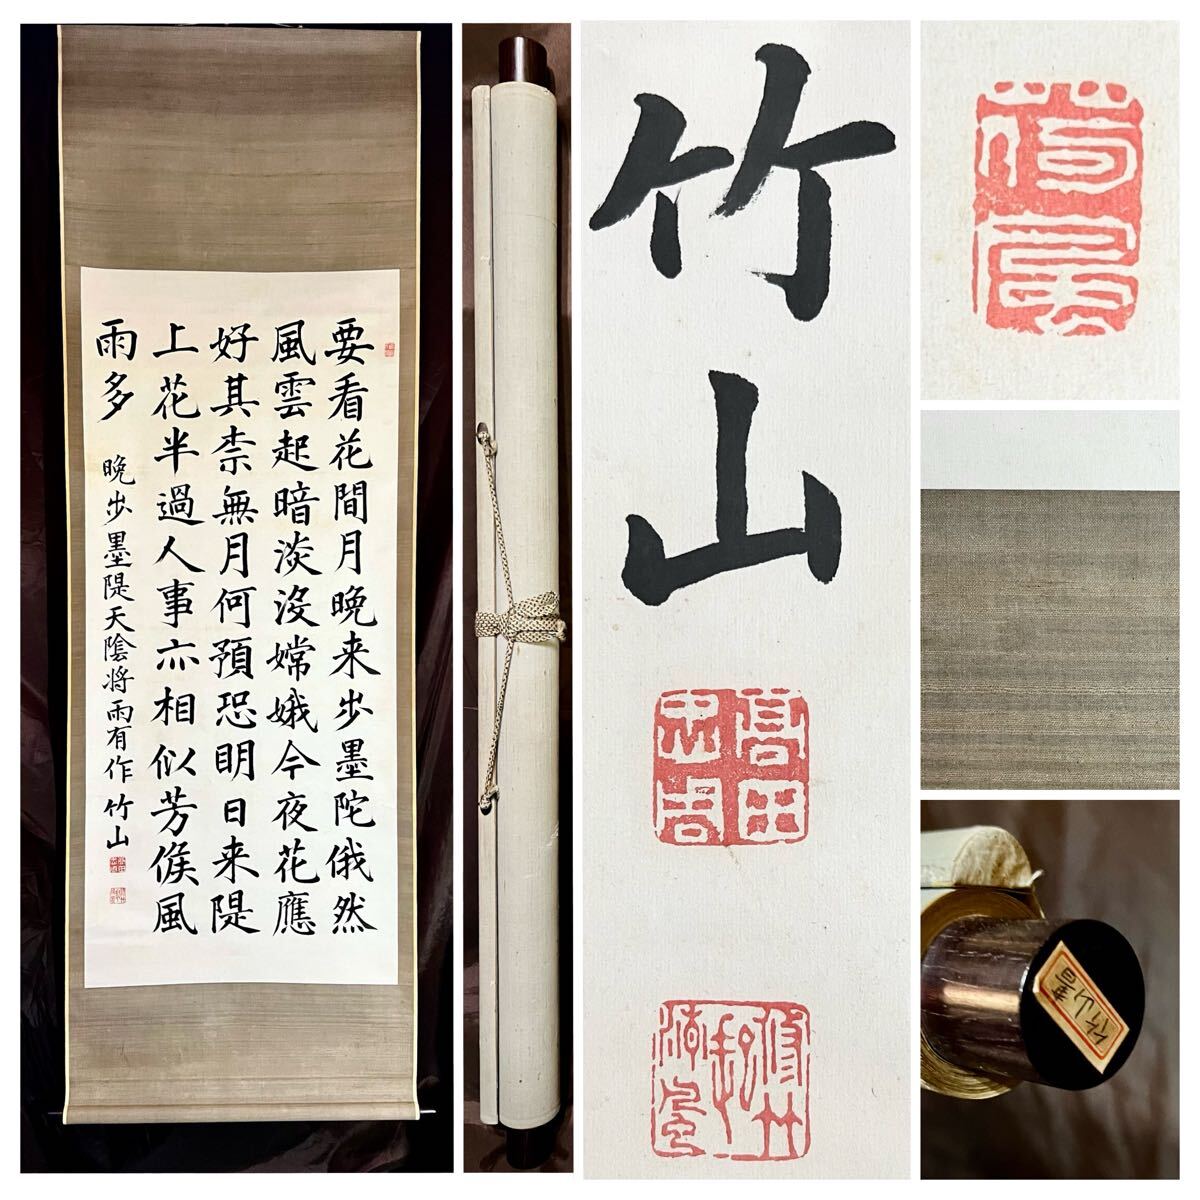 要看花間月晩来歩墨陀俄然
風雲起暗淡没嫦娥今夜花應
好其柰無月何預恐明日来隄
上花半過人事亦相似芳候風
雨多
晩歩墨隄天陰将雨有作 竹山
竹山
高田
忠周
竹山書